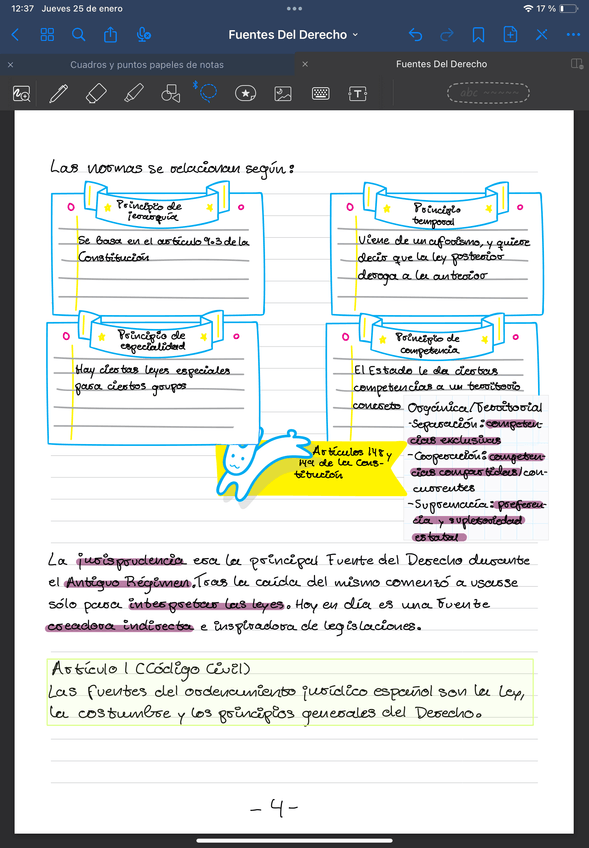 12:37 Jueves 25 de enero
17 %
Fuentes Del Derecho
Cuadros y puntos papeles de notas
Fuentes Del Derecho
abc
Las normas se relacionan según:
Principio de
jerarquía
Se basa en el artículo 9.3 de la
Constitución
Principio
temporal
Viene de un aforismo, y quiere
decir que la ley posterior
deroga a la anterior
Principio de
especialidad
Hay ciertas leyes especiales
para ciertos grupos
Principio de
competencia
El Estado le da ciertas
competencias a un territorio
concreto
Orgánica/Territorial
-Separación: competen-
cias exclusivas
-Cooperación: competen-
cias compartidas/con-
currentes
-Supremacía: preferen-
cia y supletoriedad
estatal
Artículos 148 y
149 de la Cons-
titución
La jurisprudencia era la principal Fuente del Derecho durante
el Antiguo Régimen. Tras la caída del mismo comenzó a usarse
sólo para interpretar las leyes. Hoy en día es una fuente
creadora indirecta e inspiradora de legislaciones.
Artículo 1 (Código Civil)
Las fuentes del ordenamiento jurídico español son la ley,
la costumbre y los principios generales del Derecho.
-4-